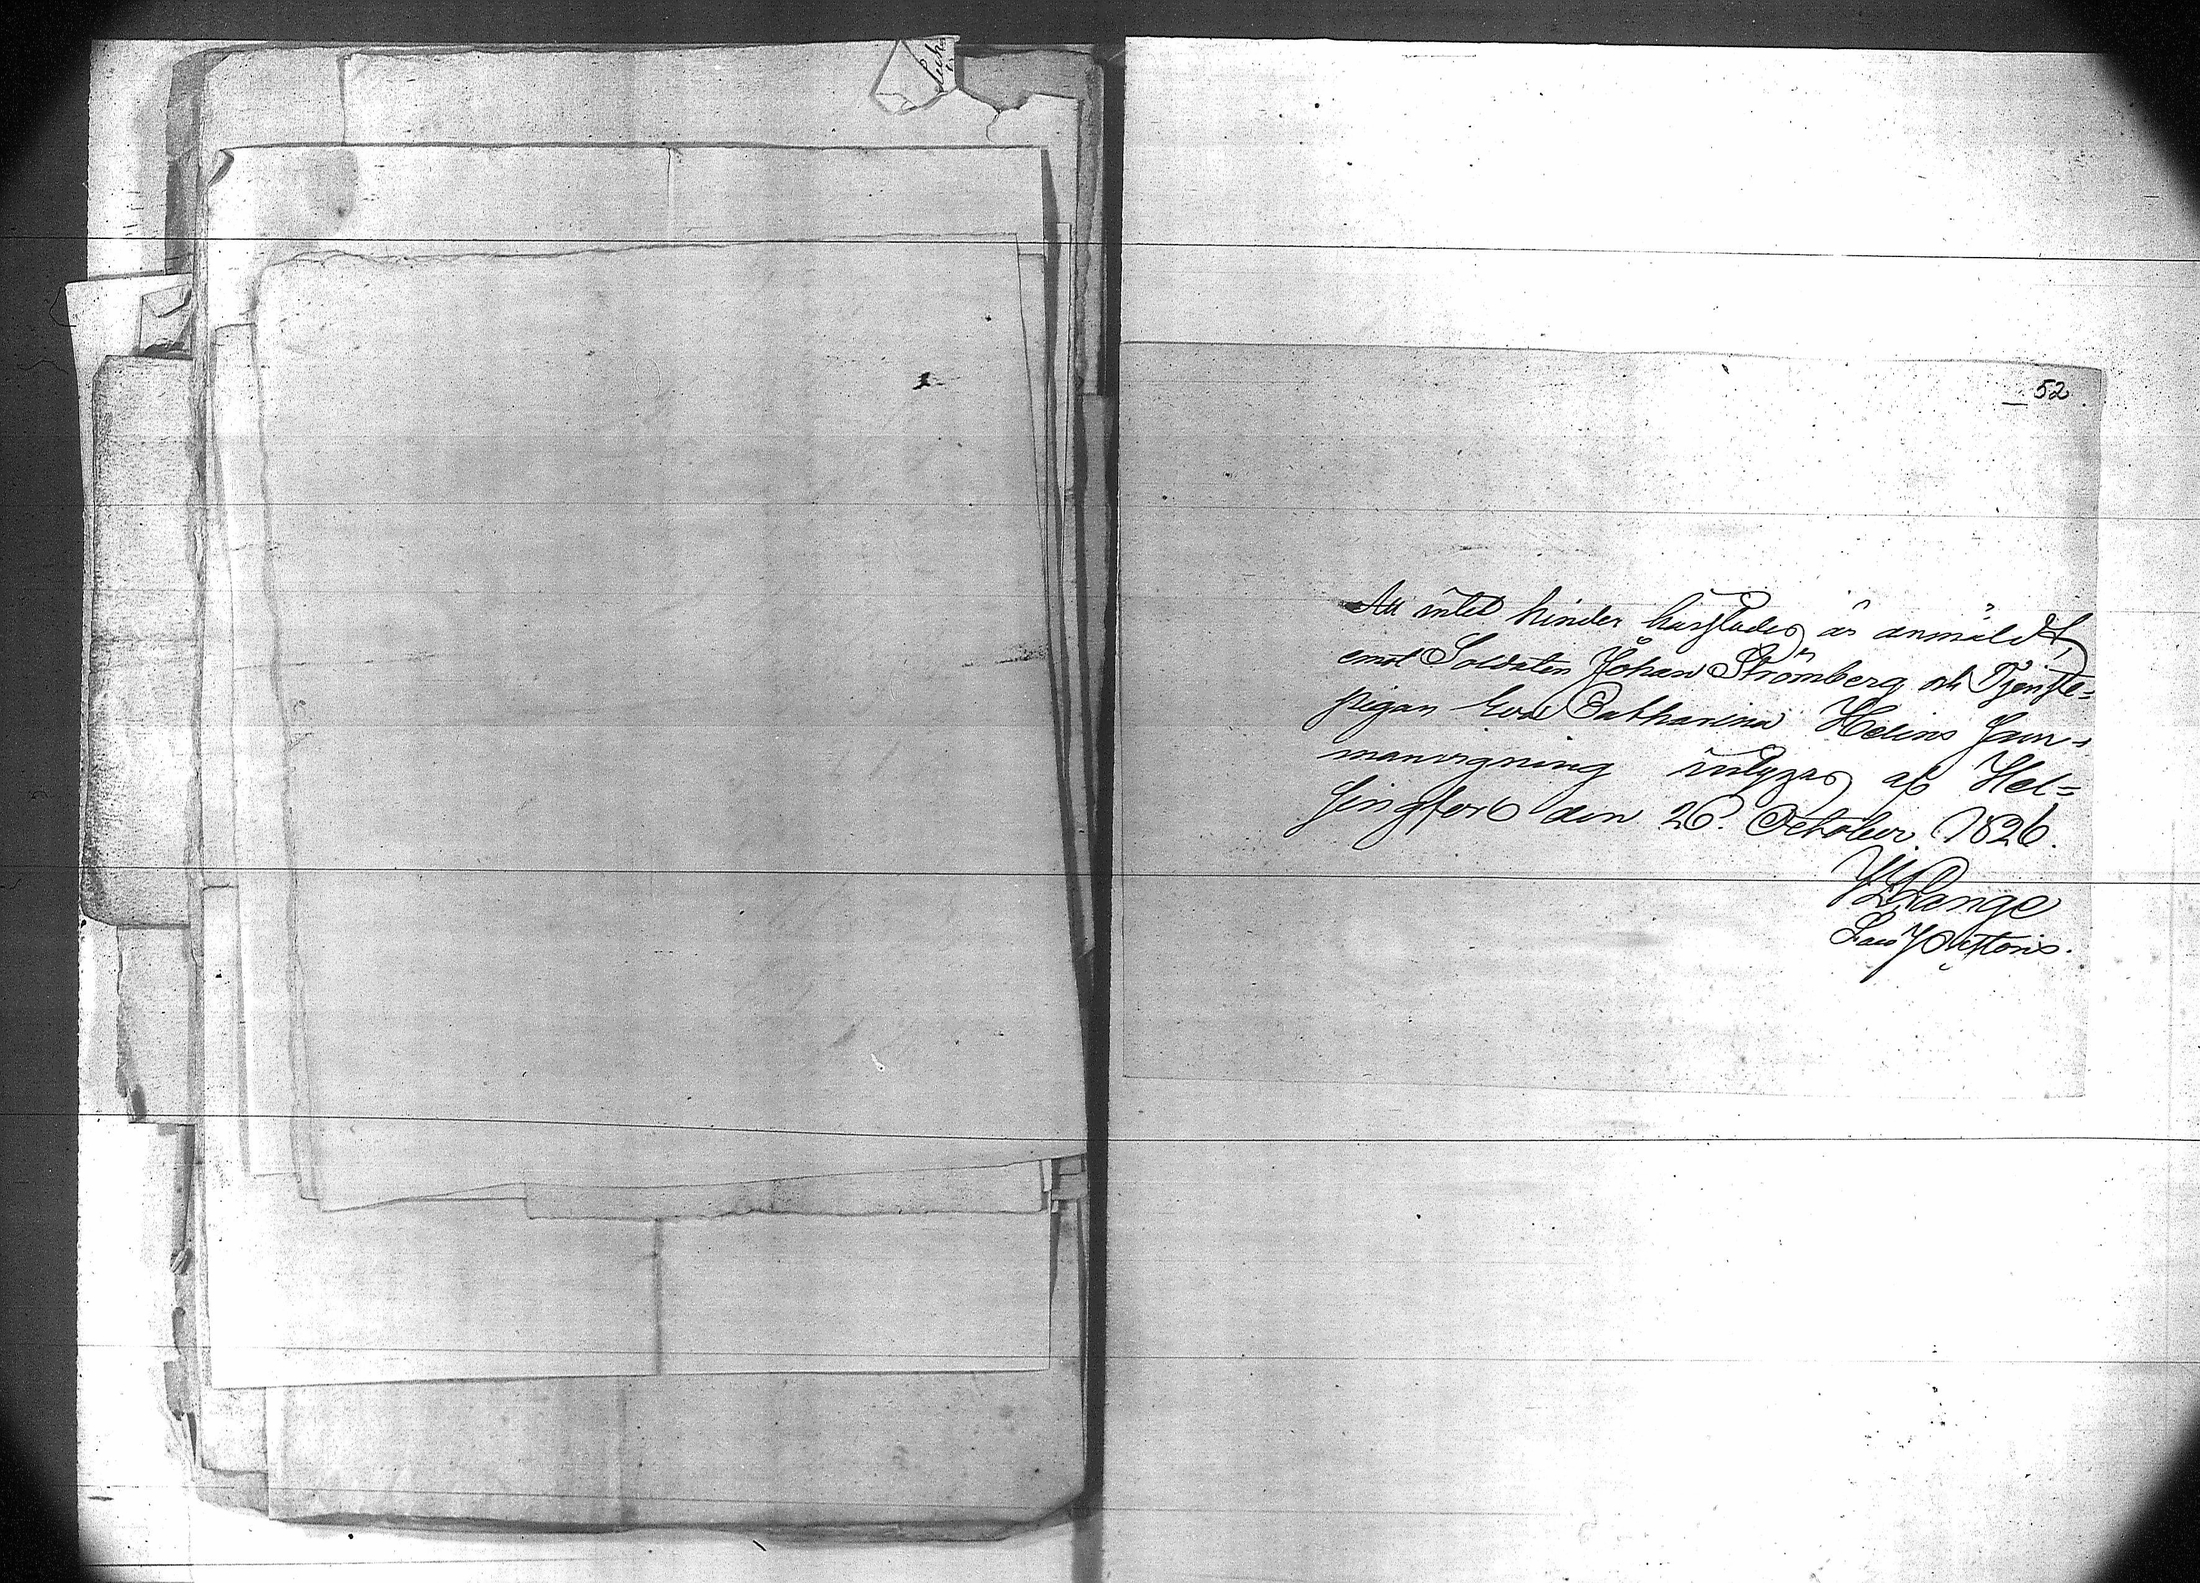 52
Att intet hinder härstädes är anmäldt,
emot Soldaten Johan Strömberg och Tjenste-
pigan Eva Catharina Helins Sam-
manvigning intygas af Hel-
singfors den 26. October 1826.
Lange
Pastoris.